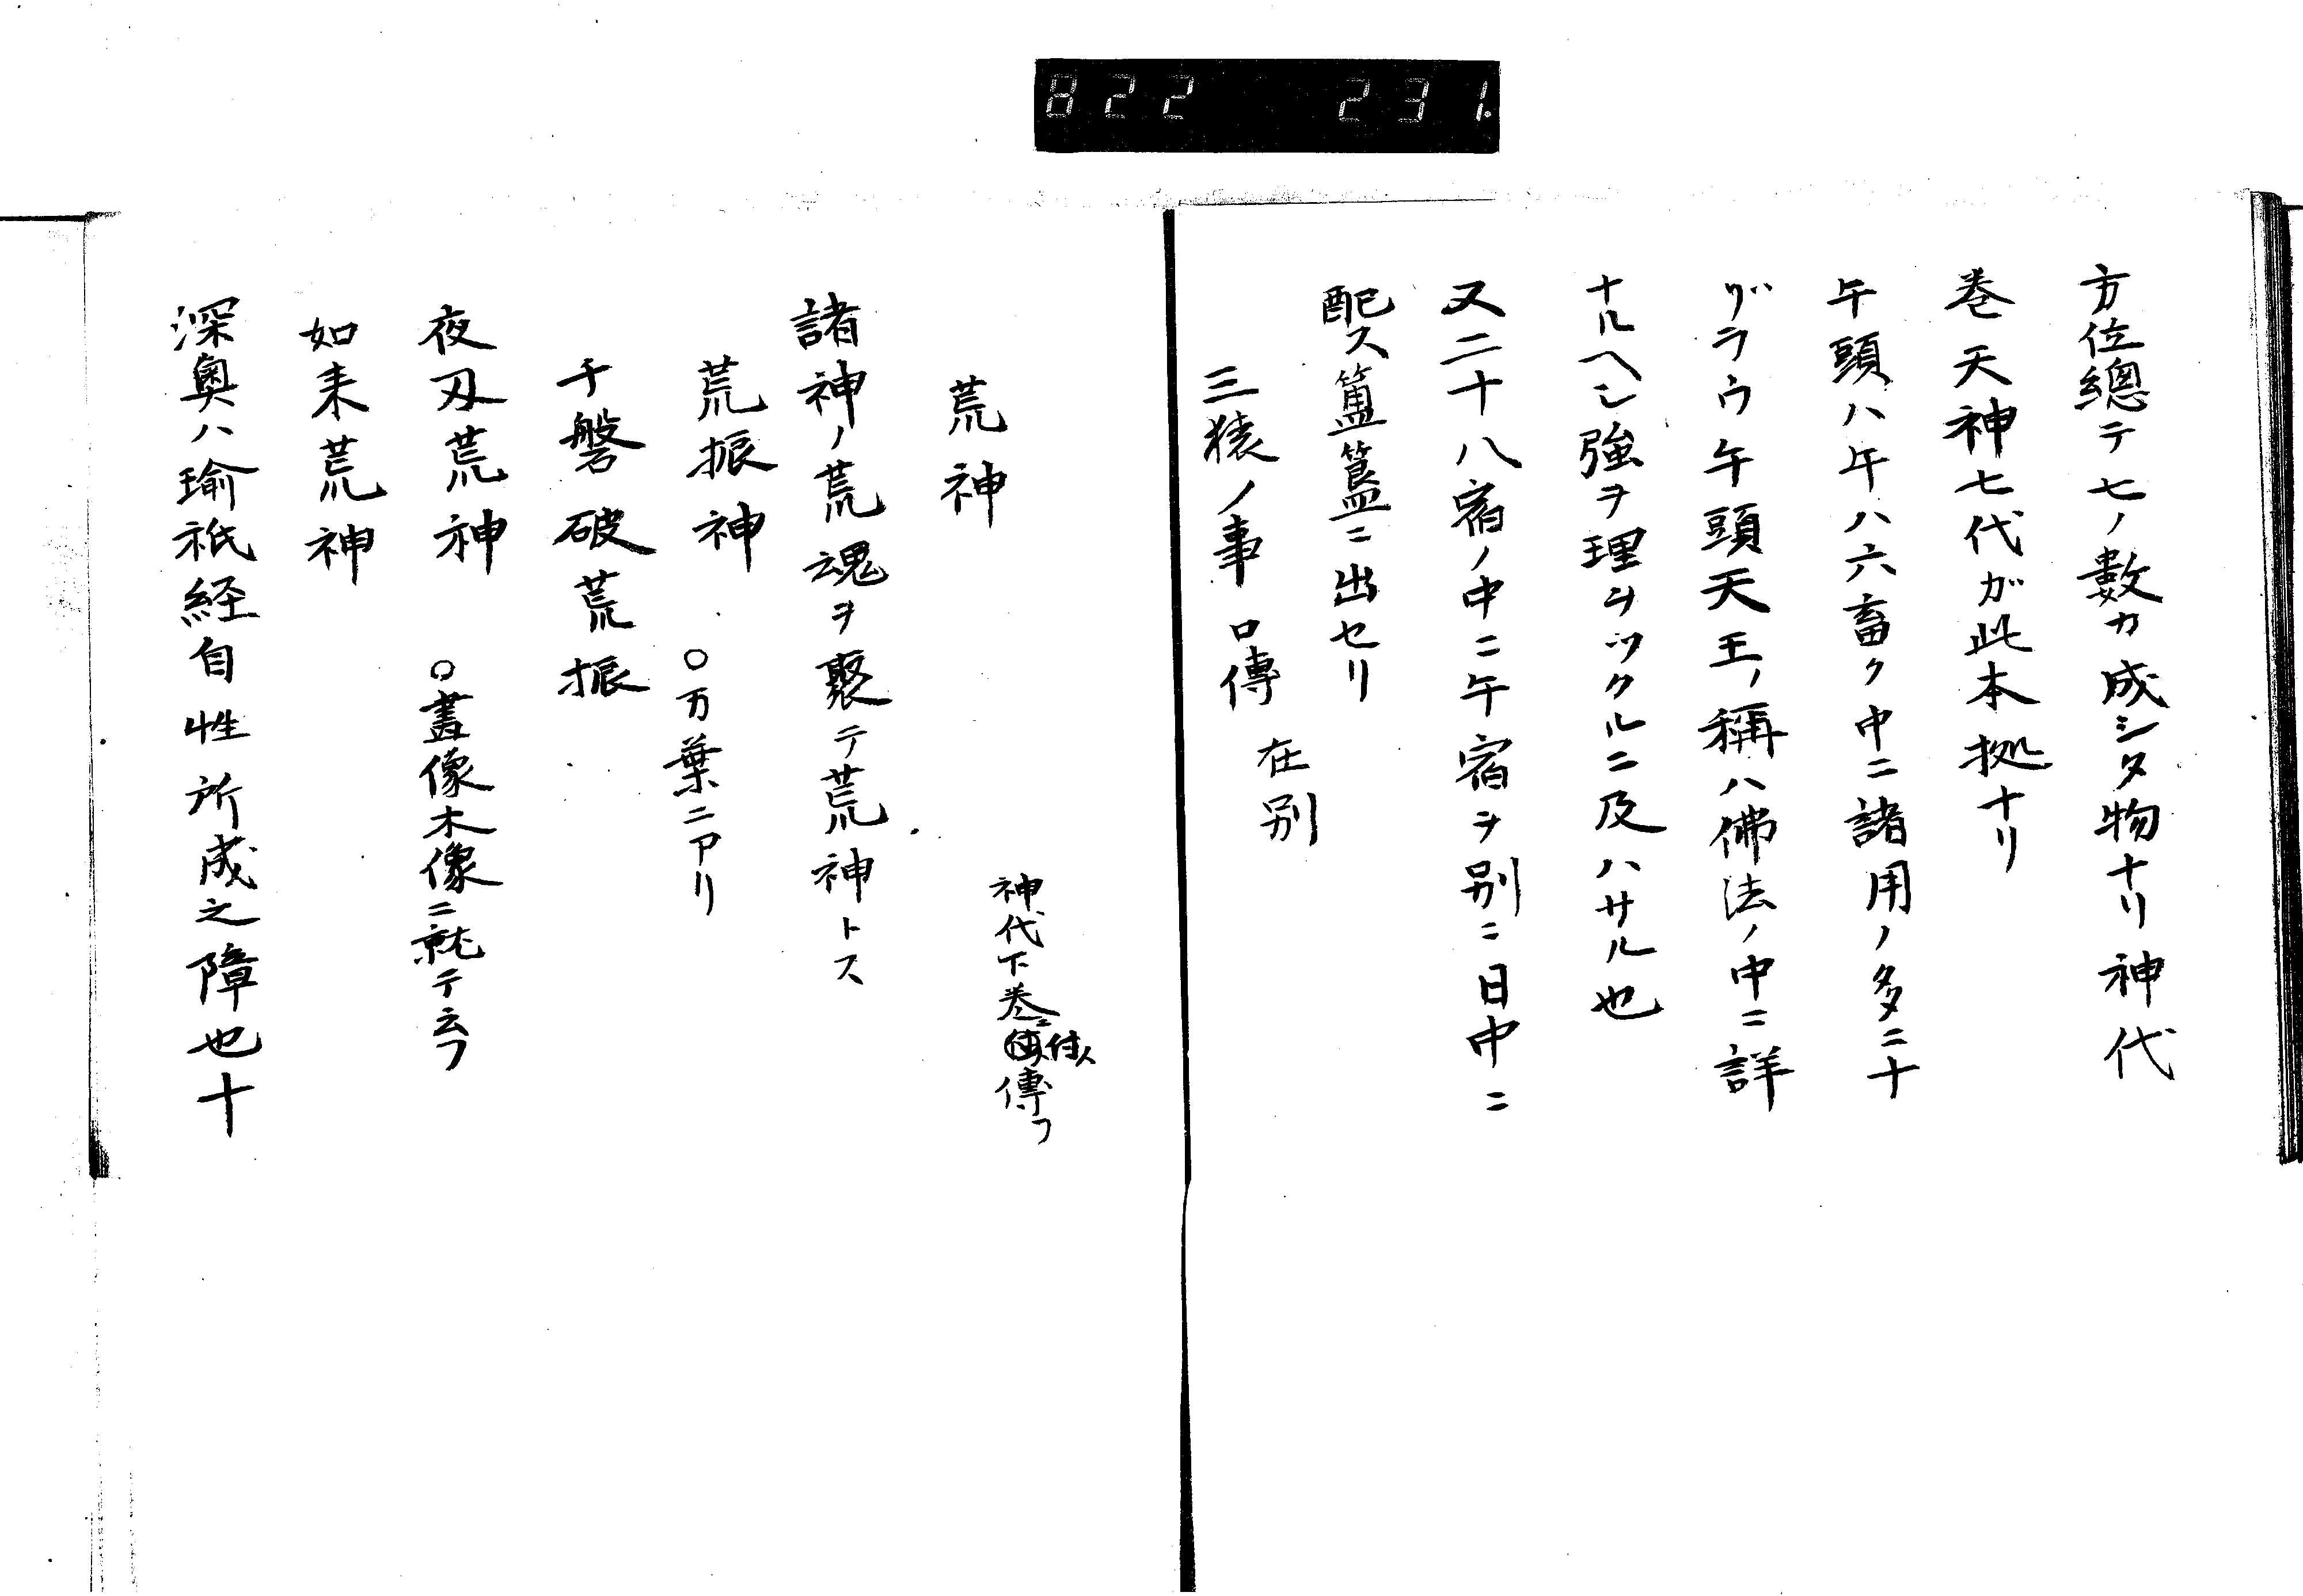 822 231.
方位總テ七ノ數カ成シタ物ナリ神代
巻天神七代ガ此本拠ナリ
午頭ハ午ハ六畜ク中ニ諸用ノ多ニ十
ヅラウ午頭天王ノ稱ハ佛法ノ中ニ詳
ナルヘシ強ヲ理ヲツクルニ及ハサル也
又二十八宿ノ中ニ午宿ヲ別ニ日中ニ
配ス簠簋ニ出セリ
三猿ノ事 口傳 在別
荒神
神代下巻ニ付ス傳フ
諸神ノ荒魂ヲ聚テ荒神トス
荒振神 〇万葉ニアリ
千磐破荒振
夜叉荒神 〇畫像木像ニ就テ云フ
如来荒神
深奥ハ瑜祇経自性所成之障也十